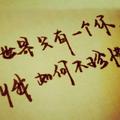 世界只有一个你
叫我如何不珍惜